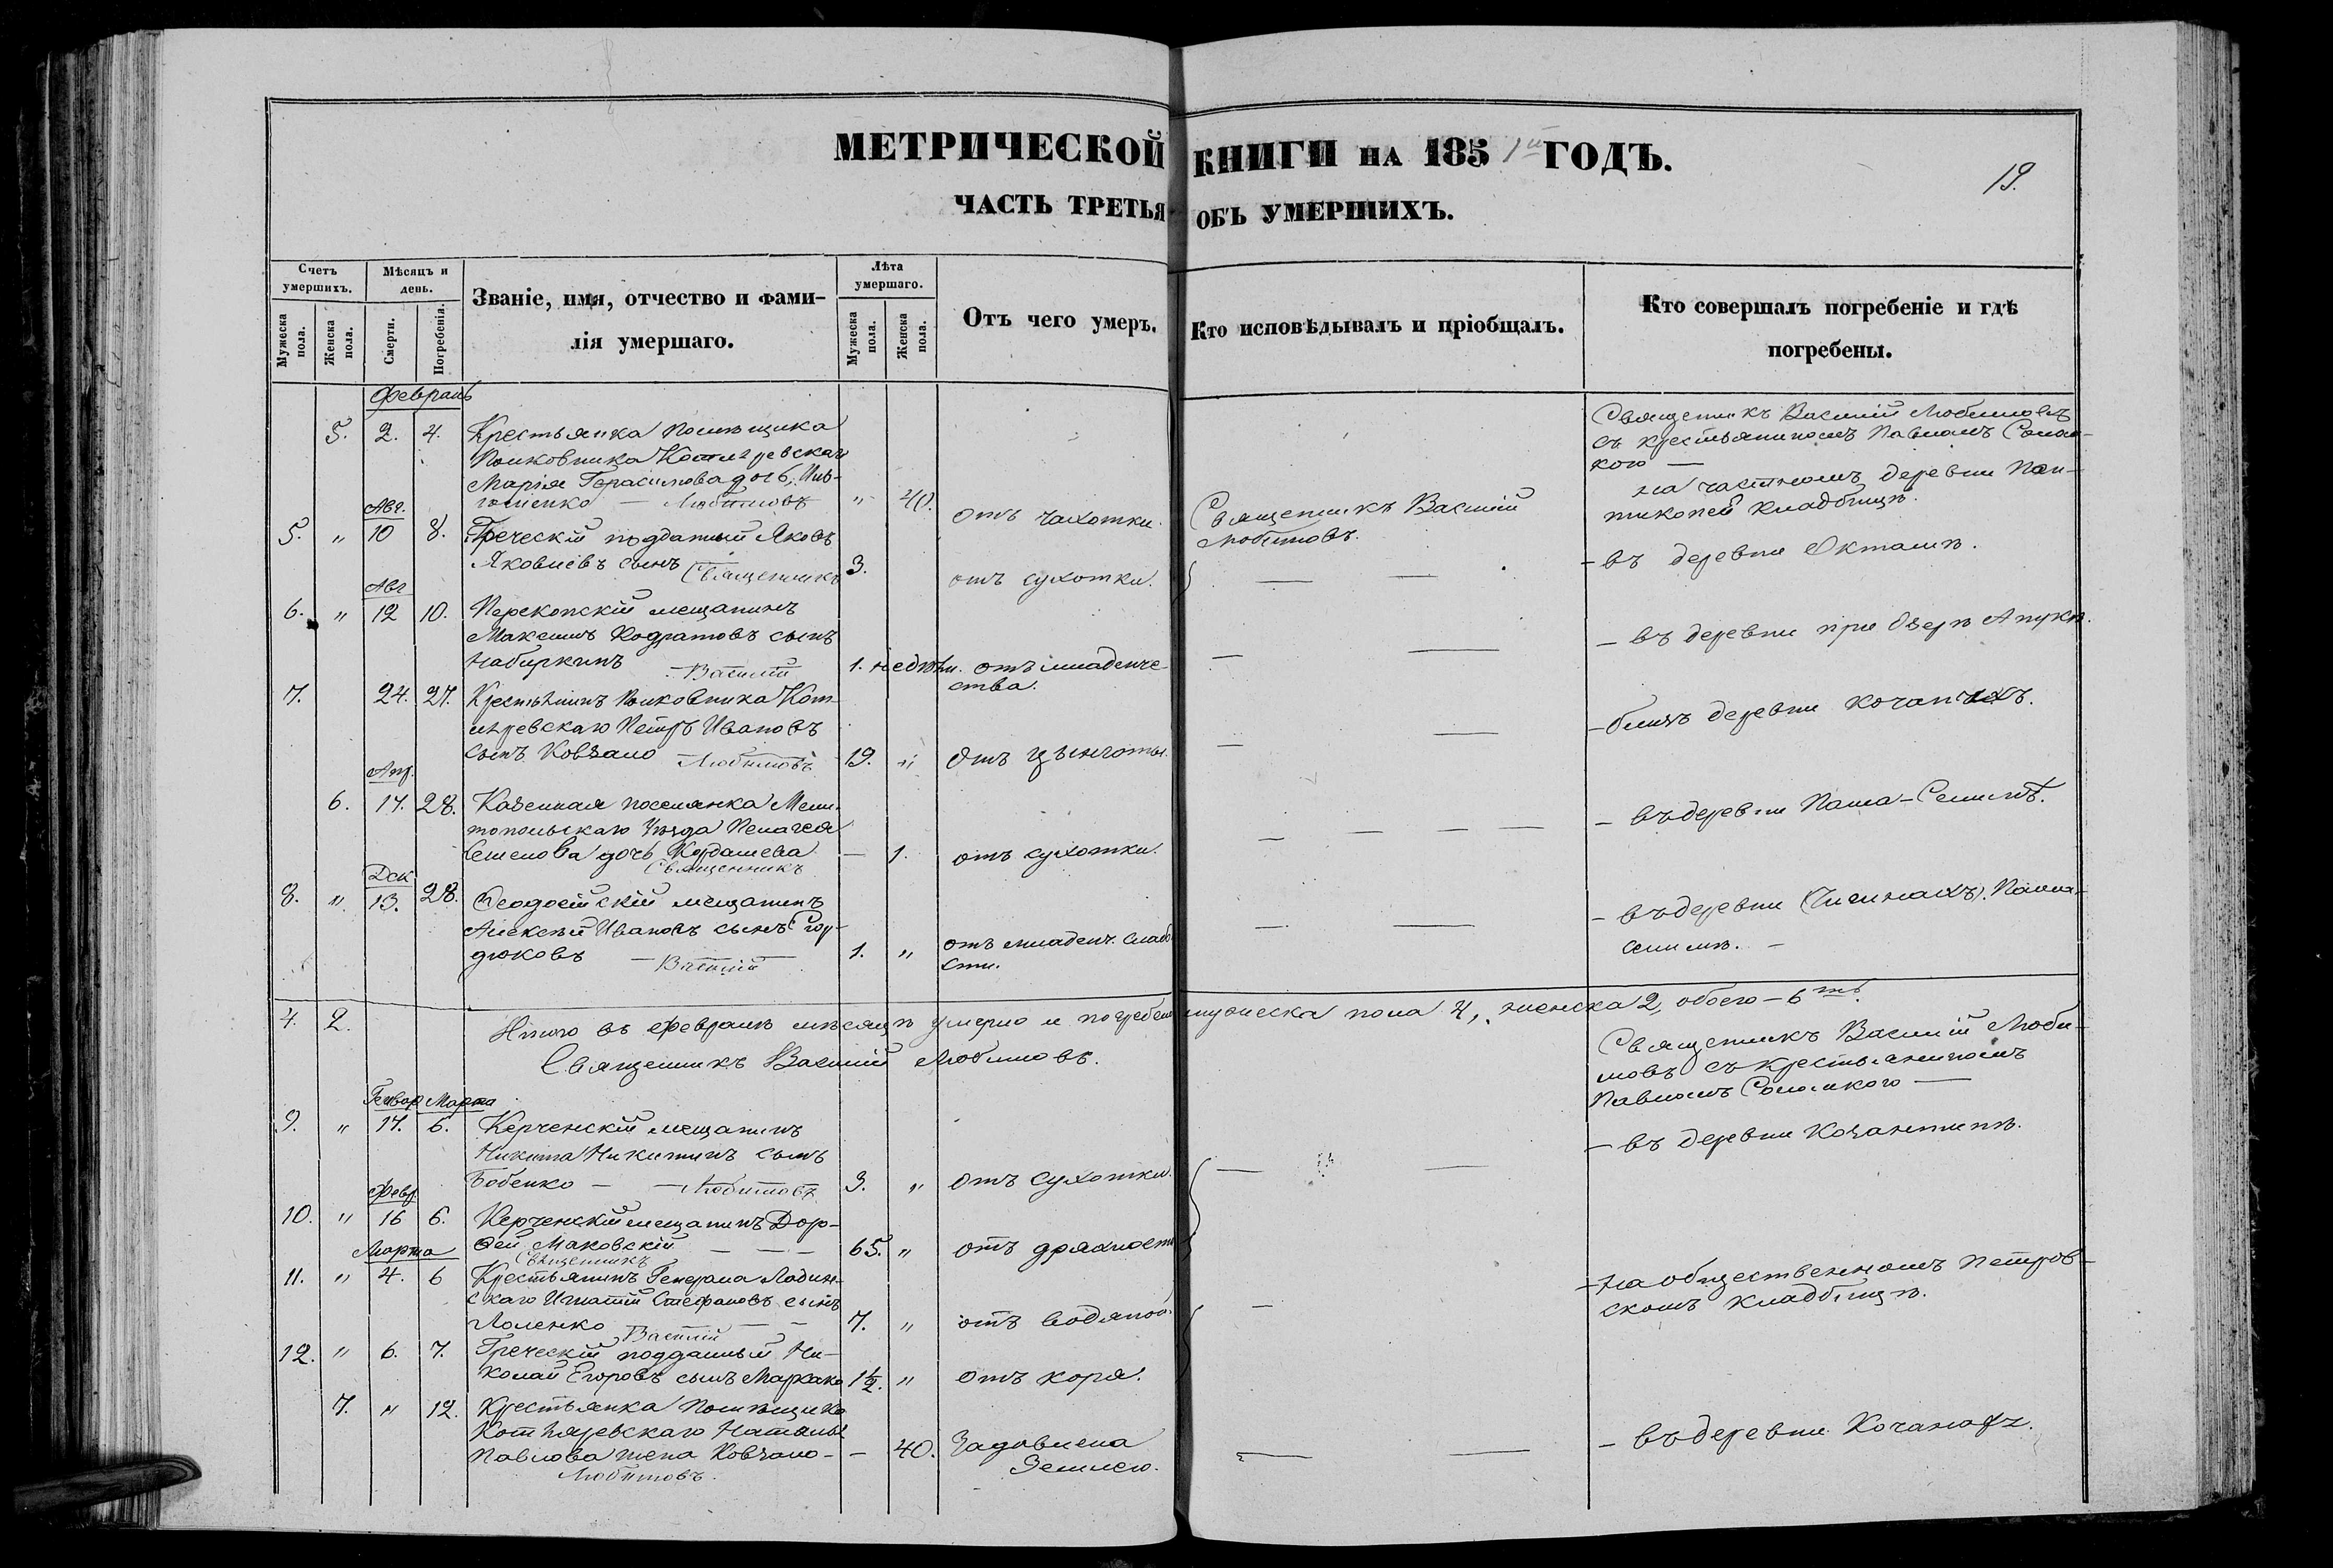 МЕТРИЧЕСКОЙ КНИГИ НА 1851й ГОДЪ.
19.
ЧАСТЬ ТРЕТЬЯ ОБЪ УМЕРШИХЪ.
Счетъ умершихъ.
Мужеска пола.
Женска пола.
Мѣсяцъ и день.
Смерти.
Погребенія.
Званіе, имя, отчество и фами-
лія умершаго.
Лѣта умершаго.
Мужеска пола.
Женска пола.
Отъ чего умеръ.
Кто исповѣдывалъ и пріобщалъ.
Кто совершалъ погребеніе и гдѣ
погребены.
Февраль
5. 2. 4. Крестьянка Помѣщика
Полковника
Марія Герасимова дочь
Любимовъ " 40. отъ чахотки.
Священникъ Василій
Любимовъ.
Священникъ Василій Любимовъ
съ крестьяниномъ Павломъ
на частномъ деревни
кладбищѣ.
Авг.
5. " 10 8. Греческій подданный Яковъ
Яковлевъ сынъ Священникъ 3. отъ сухотки.
въ деревни Окташѣ.
Авг
6. " 12 10. Перекопскій мещанинъ
Максимъ Кодратовъ сынъ
Набиркинъ Василій 1. недѣли. отъ младенче-
ства.
въ деревни при Озерѣ
7. 24. 27. Крестьянинъ Полковника Кот-
ляревскаго Петръ Ивановъ
сынъ Ковзало Любимовъ 19. " Отъ цынготы.
близъ деревни
Апр.
6. 17. 28. Казенная поселянка Мели-
топольскаго Уѣзда Пелагея
Семенова дочь Кордашева — 1. отъ сухотки.
Священникъ
въ деревни Паша-Селимѣ.
Дек
8. " 13. 28. Феодосійскій мещанинъ
Алексѣй Ивановъ сынъ
дюковъ Василій 1. " отъ младенч. слабо-
сти.
въ деревни Паша-
Селимѣ.
4. 2. Итого въ Февралѣ мѣсяцѣ умерло и погребено мужеска пола 4, женска 2, обоего — 6ть.
Священникъ Василій Любимовъ.
Священникъ Василій Люби-
мовъ съ крестьяниномъ
Павломъ
Генвар Марта
9. " 17. 6. Керченскій мещанинъ
Никита Никитинъ сынъ
Бобенко Любимовъ 3. " Отъ сухотки.
въ деревни
Февр
10. " 16 6. Керченскій мещанинъ Дор-
фей Маковскій 65. " отъ дряхлости
Священникъ
Марта
11. " 4. 6 Крестьянинъ Генерала Ладин-
скаго Игнатій Стефановъ сынъ
Лоленко Василій 7. " отъ водяной.
на общественномъ Петров-
скомъ кладбищѣ.
12. " 6. 7. Греческій подданный Ни-
колай Егоровъ сынъ 1½. " отъ коря.
7. " 12. Крестьянка Помѣщика
Котляревскаго Наталья
Павлова жена Ковзало — 40. Задавлена
Землею.
Любимовъ.
въ деревни